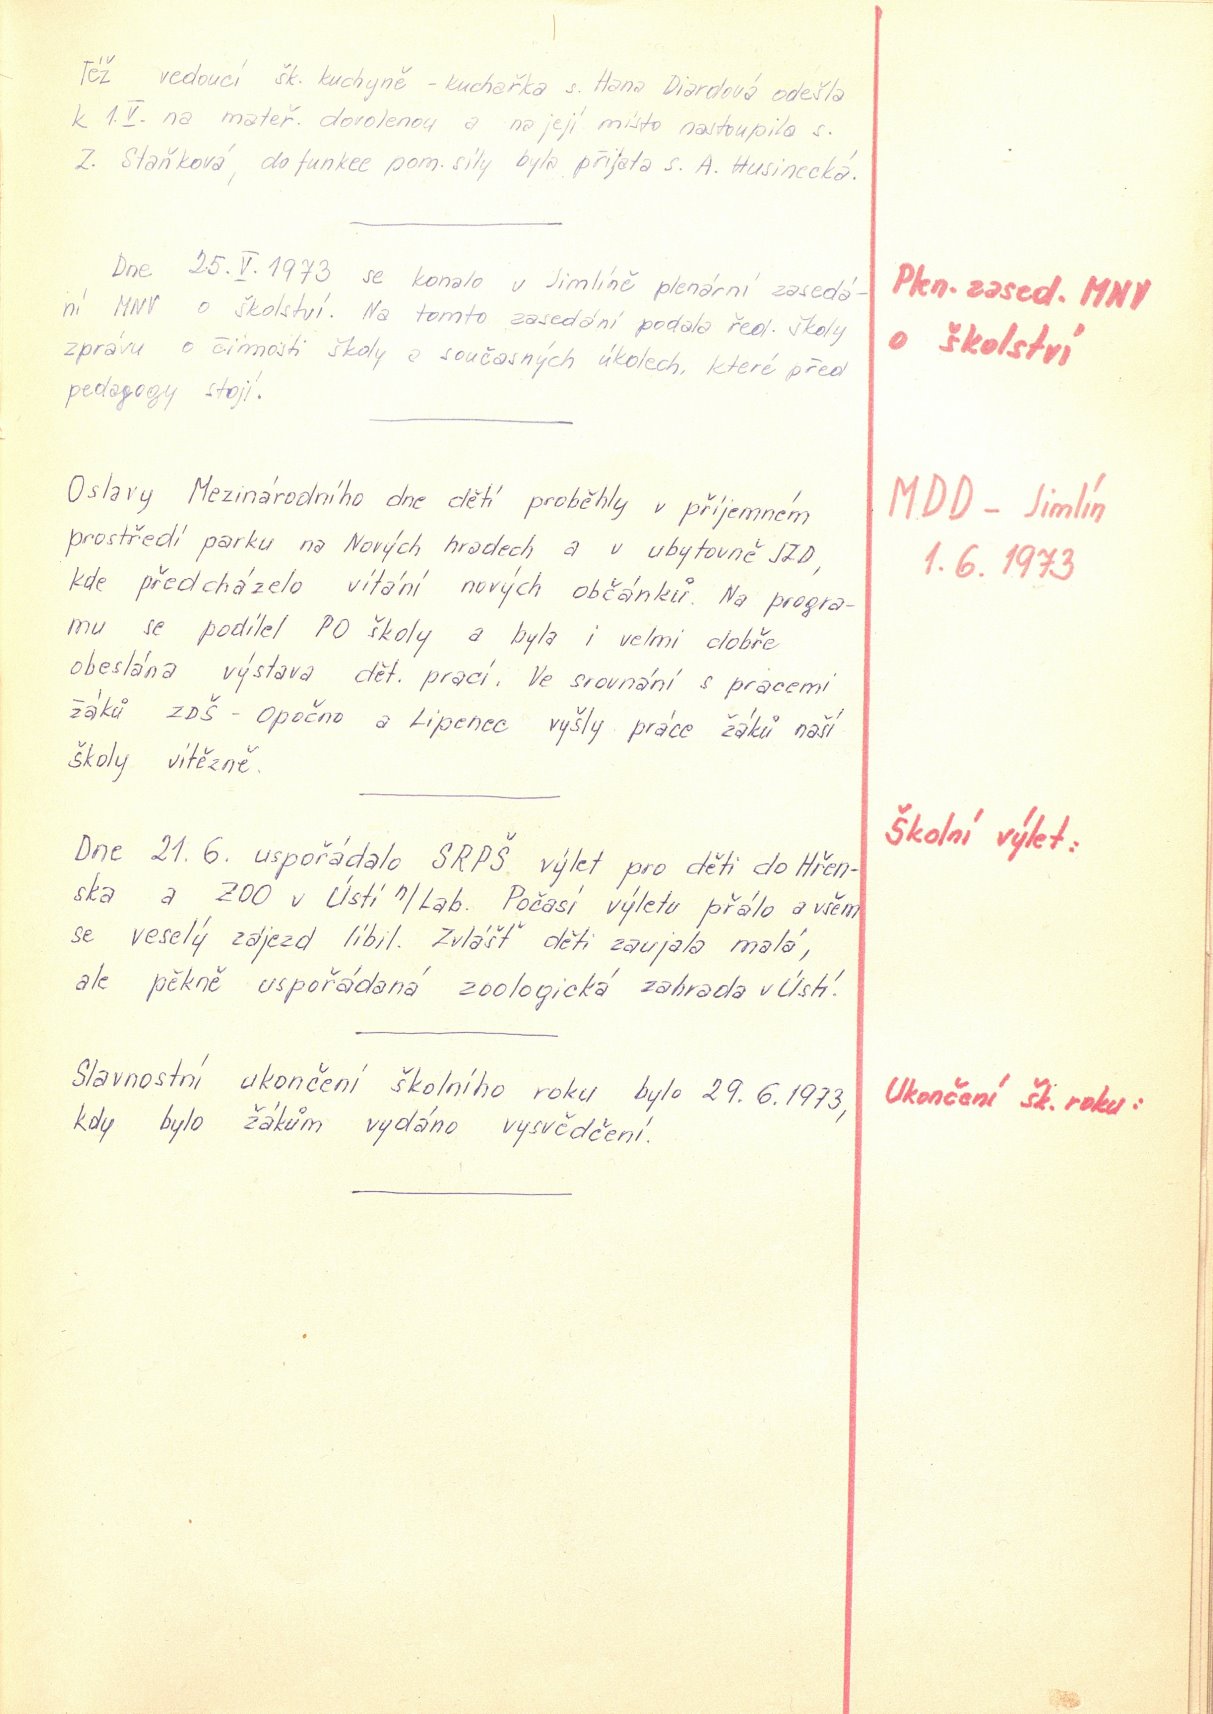 Též vedoucí šk. kuchyně - kuchařka s. Hana Diardová odešla
k 1.V. na mateř. dovolenou a na její místo nastoupila s.
Z. Staňková, do funkce pom. síly byla přijata s. A. Husinecká.
Dne 25.V.1973 se konalo v Jimlíně plenární zasedá-
ní MNV o školství. Na tomto zasedání podala řed. školy
zprávu o činnosti školy a současných úkolech, které před
pedagogy stojí.
Plen. zased. MNV
o školství
Oslavy Mezinárodního dne dětí proběhly v příjemném
prostředí parku na Nových hradech a v ubytovně SZD,
kde předcházelo vítání nových občánků. Na progra-
mu se podílel PO školy a byla i velmi dobře
obeslána výstava dět. prací. Ve srovnání s pracemi
žáků ZDŠ - Opočno a Lipenec vyšly práce žáků naší
školy vítězně.
MDD - Jimlín
1. 6. 1973
Dne 21. 6. uspořádalo SRPŠ výlet pro děti do Hřen-
ska a ZOO v Ústí n/Lab. Počasí výletu přálo a všem
se veselý zájezd líbil. Zvlášť děti zaujala malá,
ale pěkně uspořádaná zoologická zahrada v Ústí.
Školní výlet:
Slavnostní ukončení školního roku bylo 29. 6. 1973,
kdy bylo žákům vydáno vysvědčení.
Ukončení šk. roku: